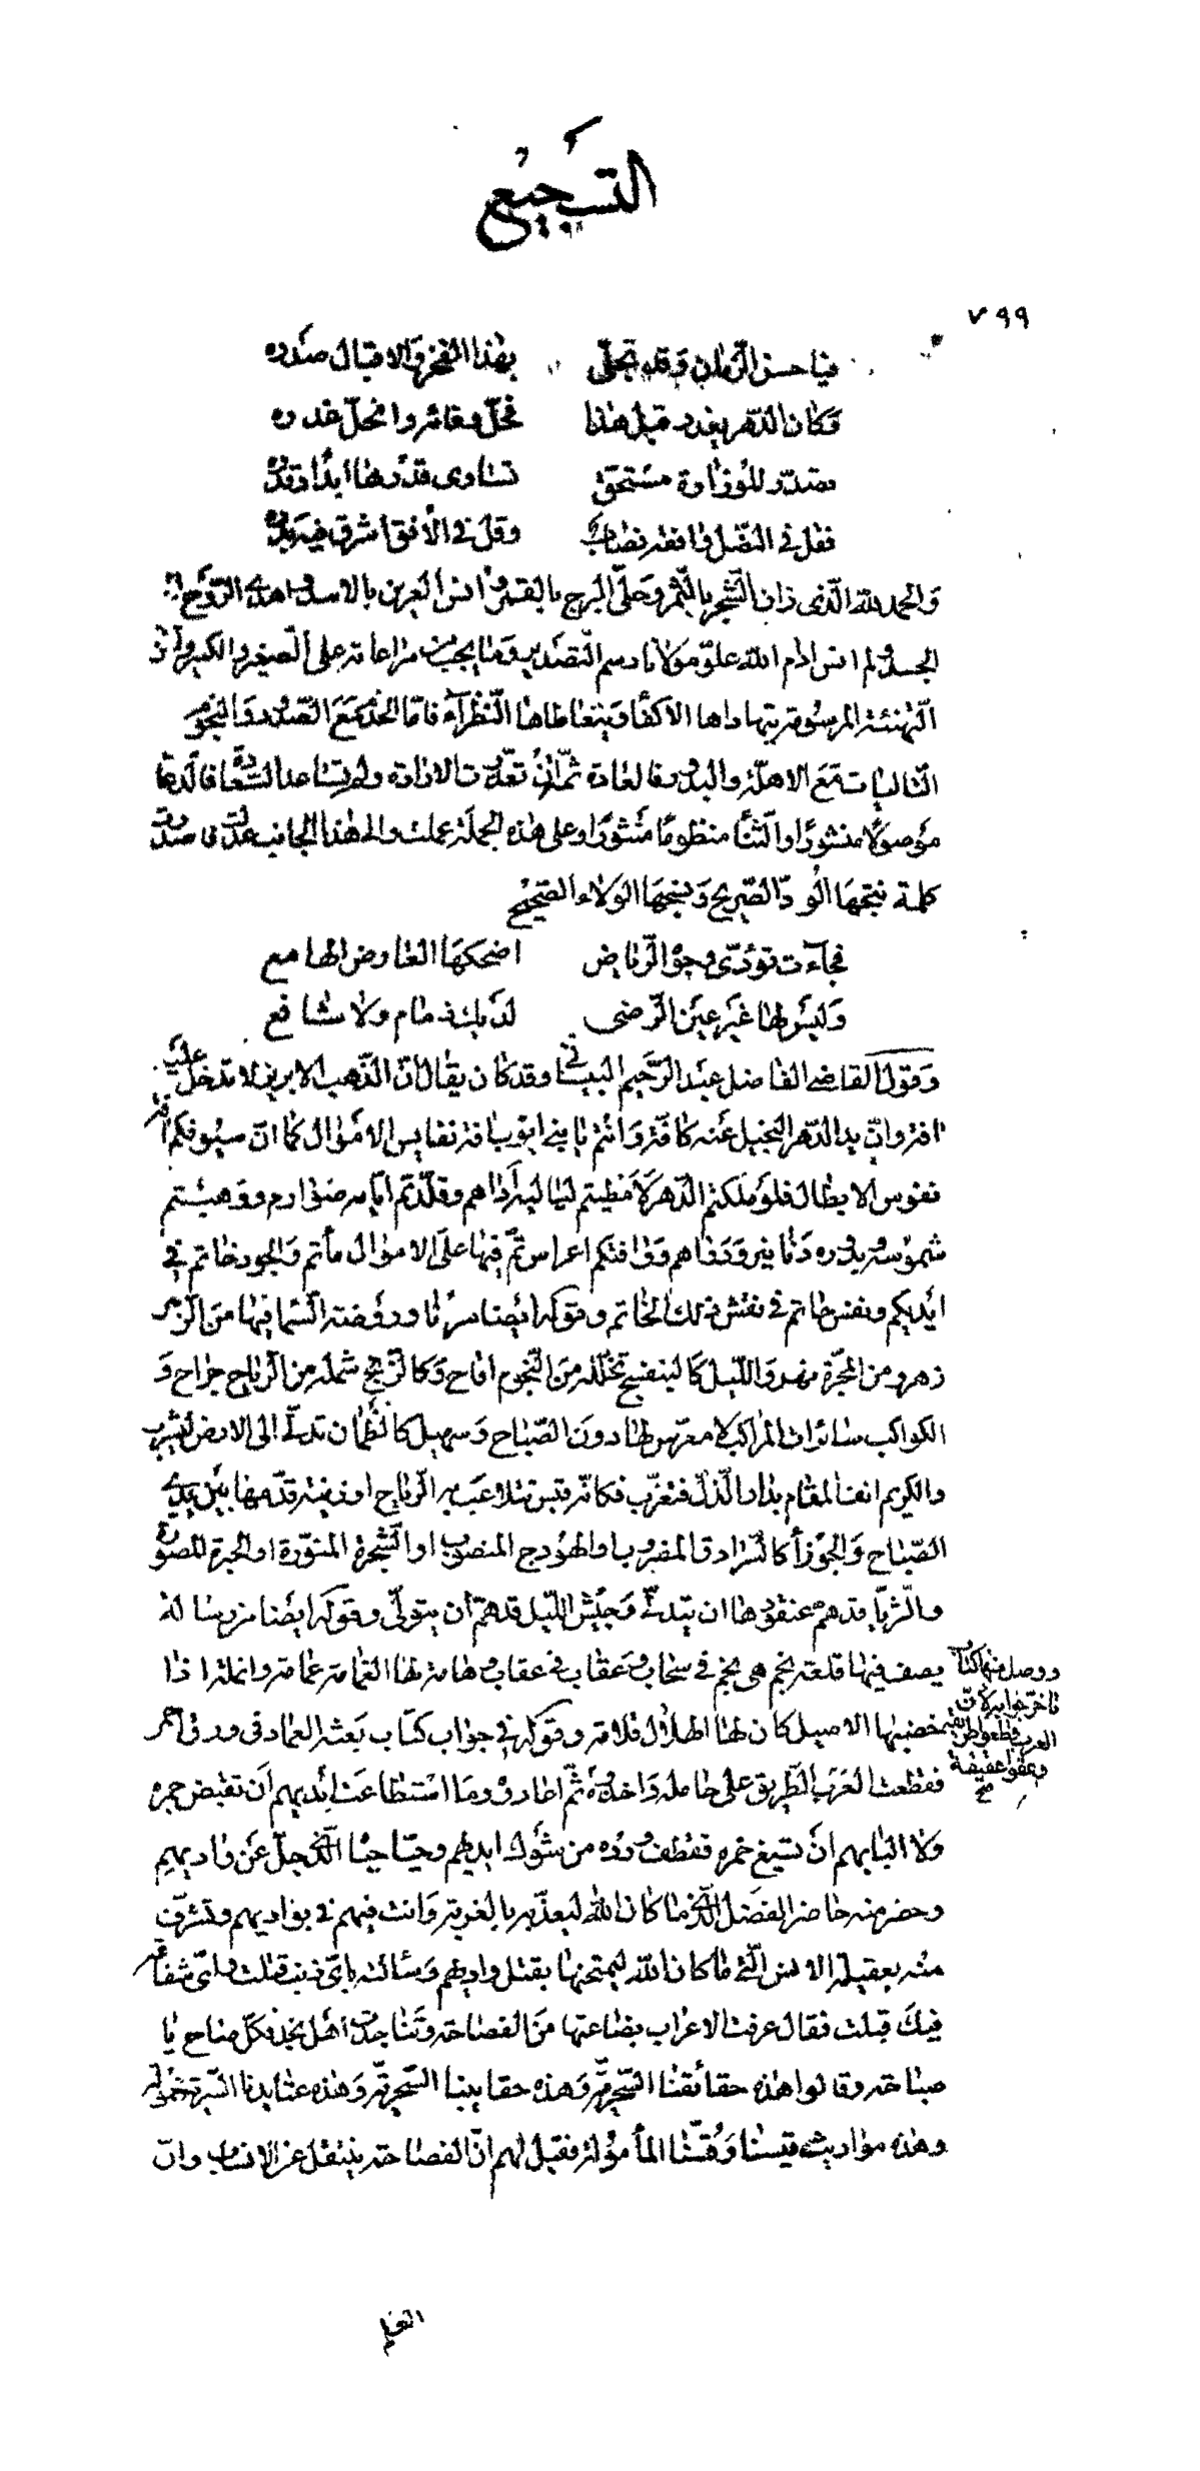 التسجيع
٧٩٩
فيا حسن الزمان وقد تجلى بهذا الفخر والاقبال صدره
وكان الدهر يغدر قبل هذا فحل وفائر وانحل غدره
تصدر للوزارة مستحق تساوى قدرها ابدا وقدره
فقل في النصل وافقه نصاب وقل في الافق اشرق فيه بدره
والحمد لله الذى زان الشجر بالثمر وحلى البرج بالقمر وانس العرين بالاسد واهدى الروح الى
الجسد ولم انس ادام الله علو مولانا رسم التصدير وما يجب من مراعاته على الصغير والكبير وان
التهنئة المرسومة يتهاداها الاكفأ ويتعاطاها النظرآء فاما الخدم مع الصدور والنجوم
التاليات مع الاهلة والبدور فالعادة ثم ان تعدت الارادة ولم تساعد السعادة فالدعا
موصولا منشورا والثنأ منظوما منثورا وعلى هذه الجملة عملت والى هذا الجانب عدلت فى صدق
كلمة نتيجها الود الصريح وينسجها الولاء الصحيح
فجآءت تؤدى وجوه الرياض اضحكها العارض الهامع
وليس لها غير عين الرضى لديك ذمام ولا شافع
وقول القاضى الفاضل عبد الرحيم البيسانى وقد كان يقال ان الذهب الابريز لا تدخل عليه
افة وان يد الدهر البخيل عنه كافة وانتم يا بنى ايوب افة نفايس الاموال كما ان سيوفكم افة
نفوس الابطال فلو ملكتم الدهر لامتطيتم لياليه اداهم وقلدتم ايامه صوارم ووهبتم
شموسه وبدوره دنانير ودراهم واوقاتكم اعراس تم فيها على الاموال مأتم والجود خاتم فى
ايديكم ونفس حاتم فى نقش ذلك الخاتم وقوله ايضا سرنا وروضة السما فيها من الزهر
زهر ومن المجرة نهر والليل كالبنفسج تخلله من النجوم اقاح وكالزنج شمله من الرياح جراح و
الكواكب سائرات المراكب لا معرس لها دون الصباح وسهيل كالظمان تدلى الى الارض ليشرب
والكريم انف المقام بدار الذل فتغرب فكانه قبس تتلاعب به الرياح او ذبينة قدمها بين يديه
الصباح والجوزأ كالسرادق المضروب او الهودج المنصوب او الشجرة المنورة او الحبرة المصورة
والثريا قد هم عنقودها ان يتدلى وجيش الليل قد هم ان يتولى وقوله ايضا من رسالة
يصف فيها قلعة نجم هى نجم فى سحاب وعقاب فى عقاب وهامة لها الغمامة عمامة وانملة اذا
خضبها الاصيل كان لها الهلال قلامة وقوله فى جواب كتاب بعثه العماد فى ورق احمر
ووصل منها كتاب
تاخر جوابه لان
العرب قطعوا طريقه
وعقوا عقيقه
صح
فقطعت العرب الطريق على حامله واخذوه ثم اعادوه وما استطاعت ايديهم ان تقبض جمره
ولا البابهم ان تسيغ خمره فقطف ورده من شوك ايديهم وحيا حيا الذى جل عن واديهم
وحضر منه حاضر الفضل الذى ما كان الله ليعذبه بالغربة وانت فيهم فى بواديهم وتشرف
منه بعقيلة الانس التى ما كان الله ليمتحنها بقتل واديهم وسألته باى ذنب قتلت واى شفاعة
فيك قبلت فقال عرفت الاعراب بضاعتها من الفصاحة وتناجدت اهل نجد فكل صاح يا
صباحه وقالوا هذه حقائقنا السحرية وهذه حقايبنا السحرية وهذه عتايدنا السرية محمولة
وهذه مواريث قيسنا وقسنا المأمولة فقيل لهم ان الفصاحة ينتقل عن الانساب وان
العلم